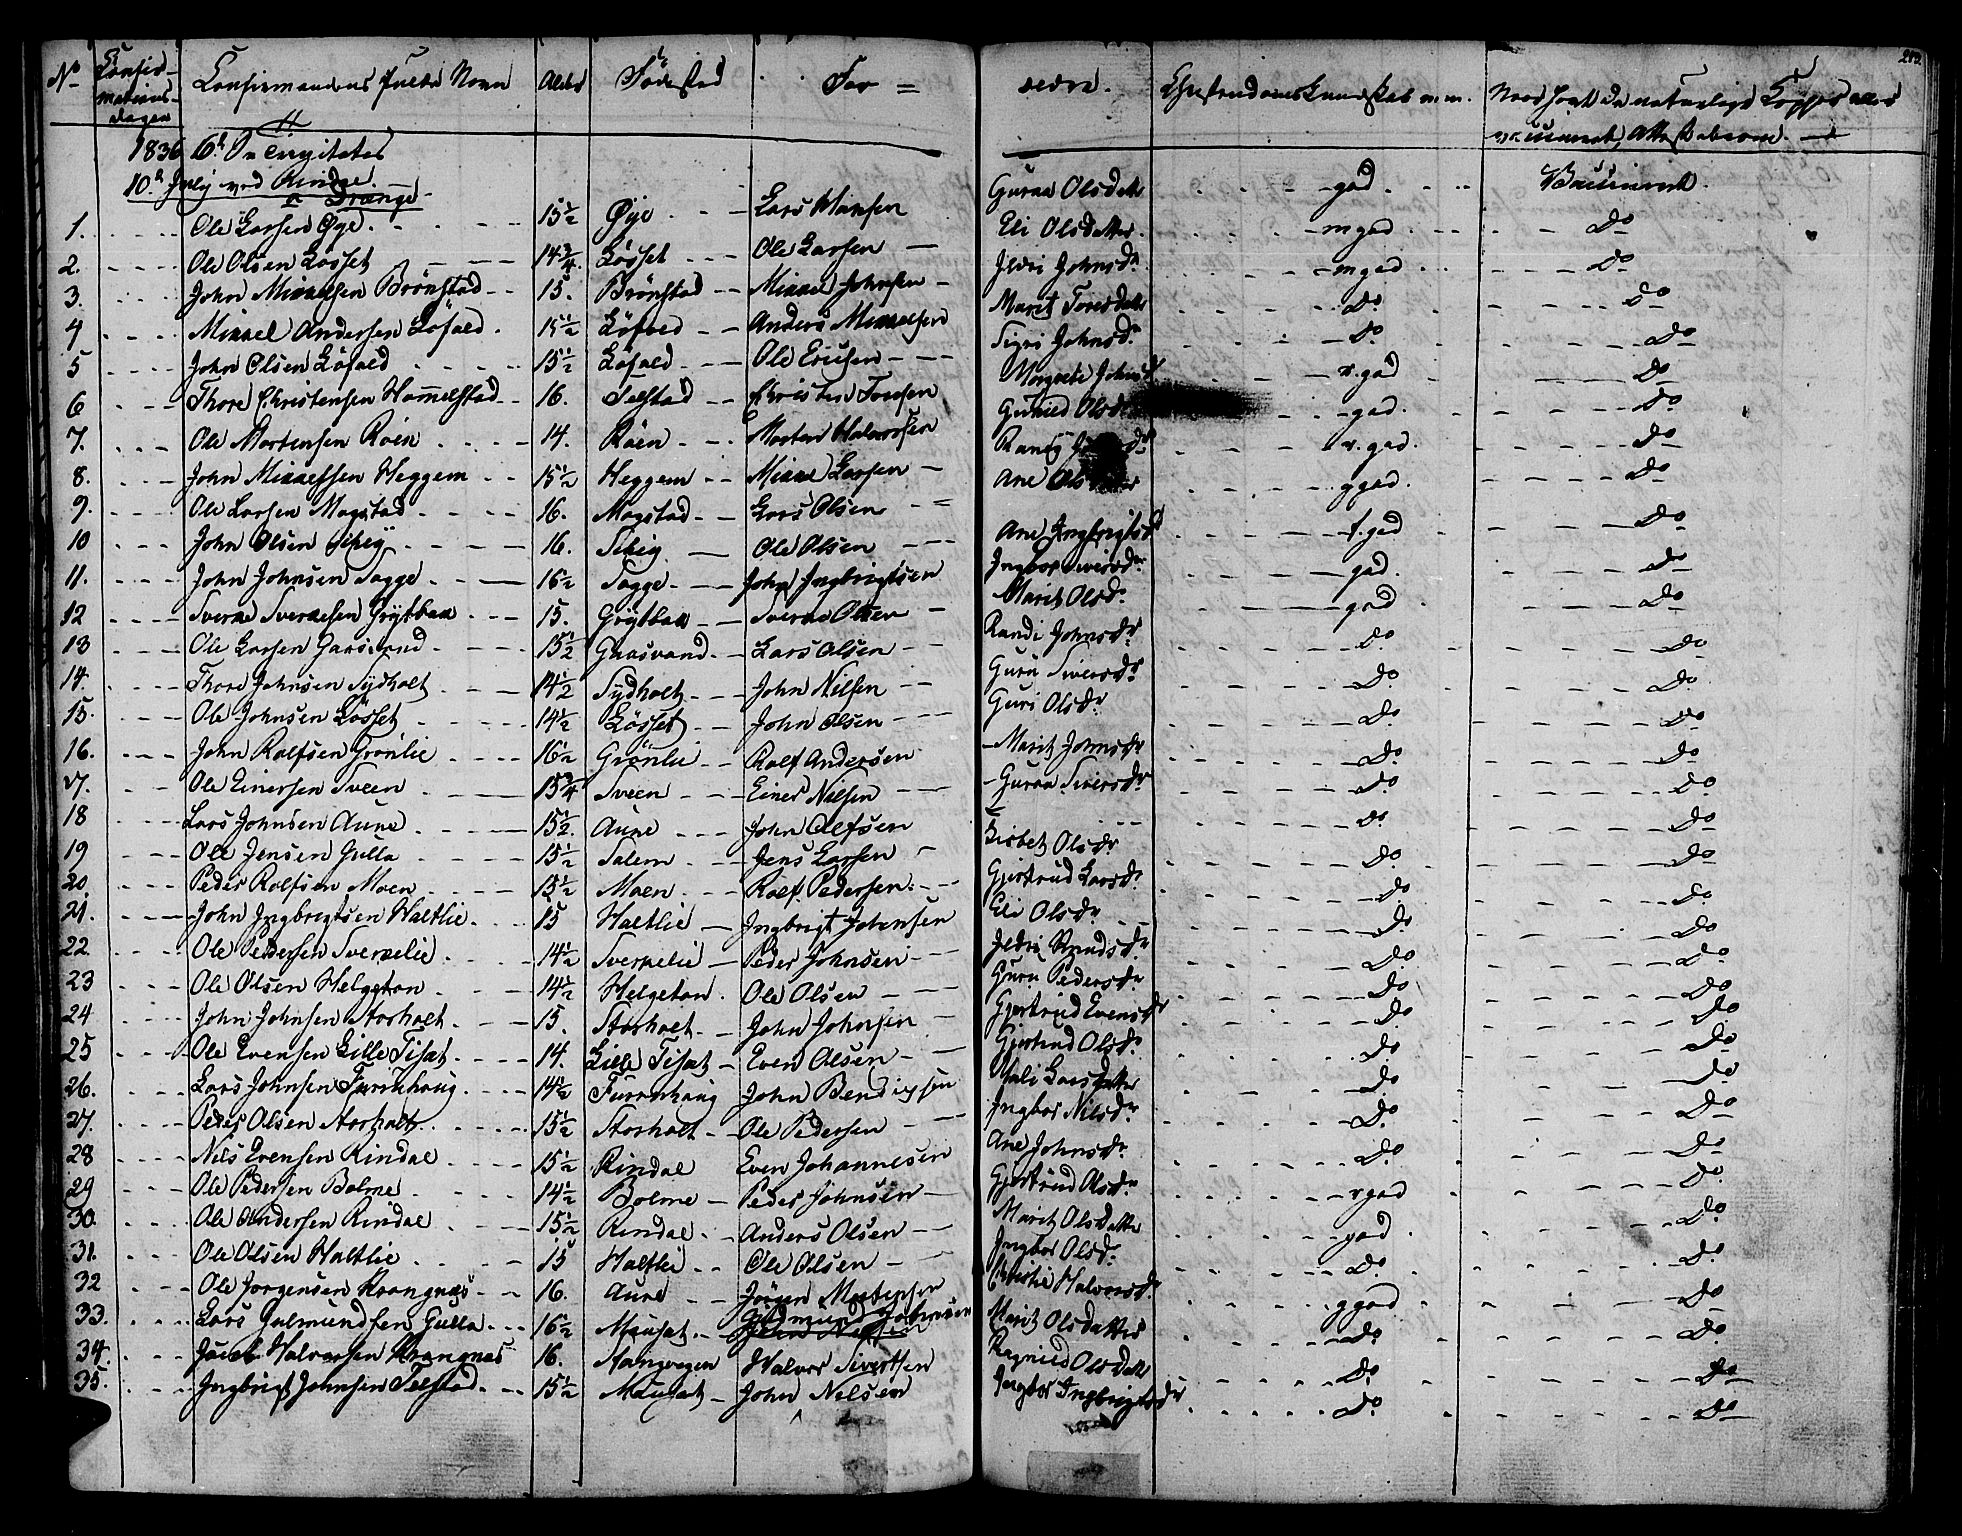 No Confir- Confirmandens fulde Navn Alder Fødestad For = ældre. Christendomskundskab m.m. Naar havt de naturlige Kopper eller
mations- vaccineret, Attest derom.
dagen
1836 6te S. e. Trinitatis
10de July ved Rindal.
Drenge
1. Ole Larsen Øye. 15½ Øye Lars Hansen Guraa Olsdatter god Vaccineret.
2. Ole Olsen Løsset 14¾ Løsset Ole Larsen Eli Olsdatter. mgod Do
3. John Mikkelsen Brønstad 15. Brønstad Mikkel Johnsen Ildri Johnsdr mgod Do
4 Mikkel Andersen Løfald. 15½ Løfald Anders Mikkelsen Marit Toresdatter Do Do
5 John Olsen Løfald 15½ Løfald Ole Ericsen Sigri Johnsdr Do Do
6 Thore Christensen Hammelstad 16. Telstad Christen Torsen Margrete Johnsdr n.god Do
7. Ole Mortensen Røen 14. Røen Morten Halvorsen Gunild Olsd god. Do
8. John Mikkelsen Heggem 15½ Heggem Mikkel Larsen Randi n.god. Do
9. Ole Larsen Mogstad 16. Mogstad Lars Olsen Ane Ols ggod. Do
10 John Olsen 16. Ole Olsen Ane Ingbrigtsd t.god Do
11. John Johnsen Togge 16½ Togge John Ingbrigtsen Ingbor Siversdr god. Do
12 Sverke Sverkesen Grytbak 15. Grytbak Sverke Olsen Marit Olsdr god Do
13 Ole Larsen Gaasvand 15½ Gaasvand Lars Olsen Randi Johnsdr Do Do
14. Thore Johnsen Sydholt 14½ Sydholt John Nilsen Guru Siversdr Do Do
15. Ole Johnsen Løsset 14½ Løsset John Olsen Guri Olsdr Do Do
16. John Rolfsen Grønlie 16½ Grønlie Rolf Andersen Marit Johnsdr Do Do
17. Ole Einersen Sveen 15¾ Sveen Einer Nilsen Guraa Siversdr Do Do
18 Lars Johnsen Aune 15½ Aune John Olfsen Do Do
19 Ole Jensen Gulla 15½ Salem Jens Larsen Lisbet Olsdr Do Do
20 Peder Rolfsen Moen 15½ Moen Rolf Pedersen Gjertrud Larsdr Do Do
21. John Ingbrigtsen Haltlie 15 Haltlie Ingbrigt Johansen Eli Olsdr Do Do
22 Ole Pedersen Sverkelie 14½ Sverkelie Peder Johnsen Ildri Do Do
23 Ole Olsen Helgeton 14½ Helgeton Ole Olsen Guru Pedersdr Do Do
24 John Johnsen Storholt 15. Storholt John Johnsen Gjertrud Evensdr Do Do
25 Ole Evensen Lille Tiset 14. Lille Tiset Even Olsen Gjertrud Olsdr Do Do
26. Lars Johnsen Furuhaug 14½ Furuhaug John Bendigsen Mali Larsdatter Do Do
27. Peder Olsen Storholt 15½ Storholt Ole Pedersen Ingbor Nilsdr Do Do
28 Nils Evensen Rindal 15½ Rindal Even Johannesen Ane Johnsdr Do Do
29 Ole Pedersen Bolme 14½ Bolme Peder Johnsen Gjertrud Olsdr ngod Do
30. Ole Andersen Rindal 15½ Rindal Anders Olsen Marit Olsdatter god Do
31. Ole Olsen Haltlie 15 Haltlie Ole Olsen Ingbor Olsdr Do Do
32 Ole Jorgensen Krangnæs 16. Aune Jørgen Christie Halvorsdr ggod Do
33. Lars Gulmundsen Gulla 16½ Mausæt Gudmund Johnsen Marit Olsdatter Do Do
34 Jacob Halvorsen Krangnæs 16. Stangvegen Halvor Sivertsen Ragnild Olsdatter Do Do
35. Ingbrigt Johnsen Telstad 15½ Mausæt John Nilsen Ingbor Ingbrigtsdr Do Do